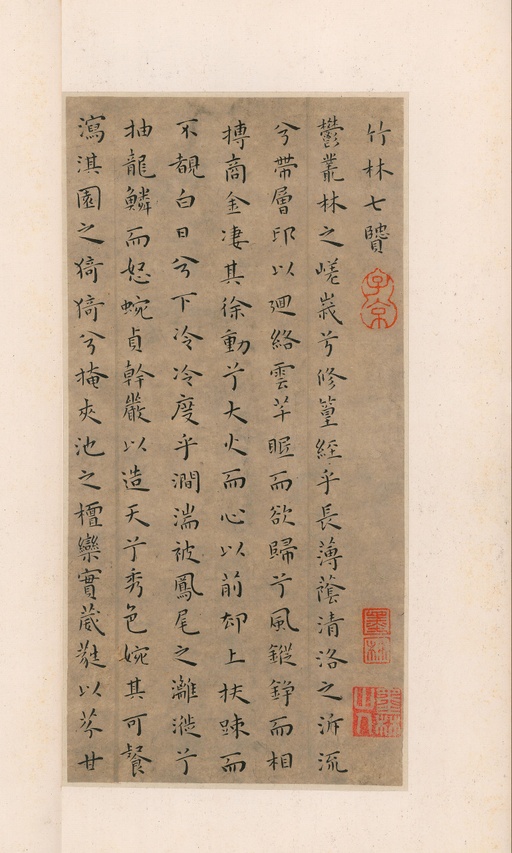 竹林七賢
子京
鬱叢林之嵯峩兮修篁經乎長薄蔭清洛之泝流
兮帶層邱以迴絡雲芊眠而欲歸兮風鏦錚而相
搏商金淒其徐動兮大火而心以前却上扶踈而
不覩白日兮下冷冷度乎澗湍被鳳尾之灕漇兮
抽龍鱗而怒蜿貞幹嚴以造天兮秀色婉其可餐
瀉淇園之猗猗兮掩夾池之檀欒實葳蕤以芬甘
墨林
墨林山人